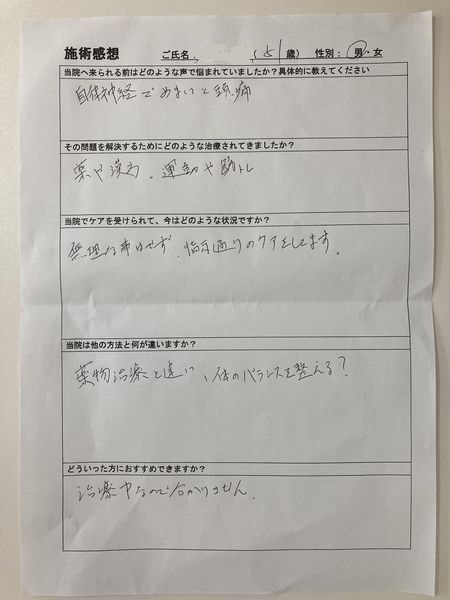 施術感想 ご氏名 (51歳) 性別: 男・女
当院へ来られる前はどのような声で悩まれていましたか?具体的に教えてください
自律神経でめまいと頭痛
その問題を解決するためにどのような治療されてきましたか?
薬や漢方、運動や筋トレ
当院でケアを受けられて、今はどのような状況ですか?
無理な事はせず、指示通りのケアをしてます。
当院は他の方法と何が違いますか?
薬物治療と違い、体のバランスを整える?
どういった方におすすめできますか?
治療中なので分かりません。